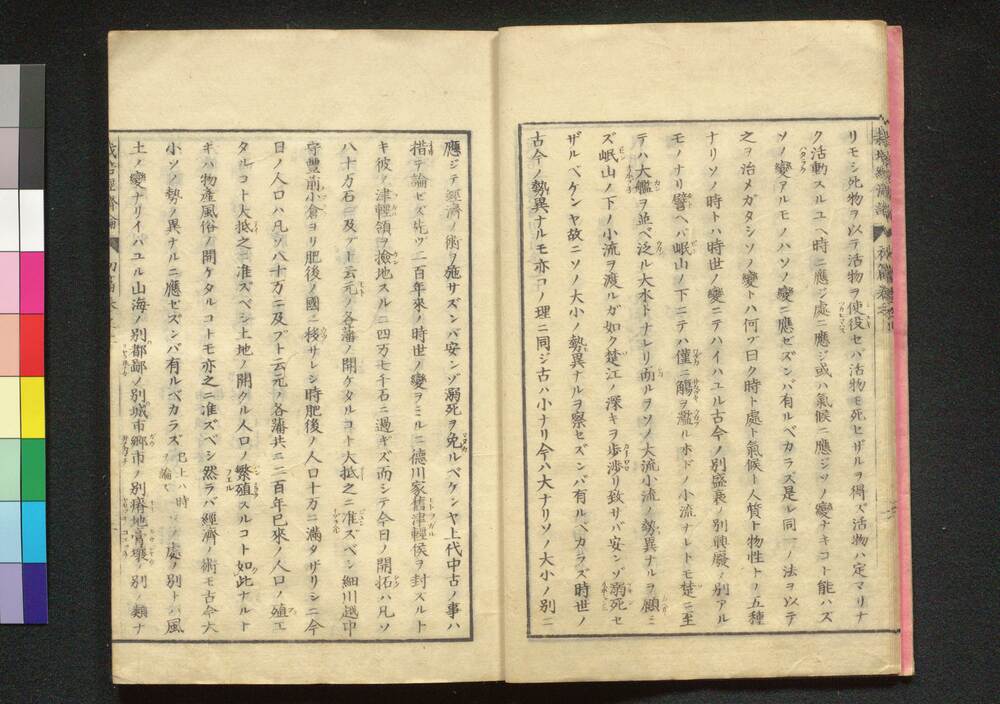 リモシ死物ヲ以テ活物ヲ使役セバ活物モ死セザルヲ得ズ活物ハ定マリナ
ク活動スルユヘ時ニ應ジ處ニ應ジ或ハ氣候ニ應ジソノ變ナキコト能ハズ
ソノ變アルモノハソノ變ニ應ゼズンバ有ルベカラズ是レ同一ノ法ヲ以テ
之ヲ治メガタシソノ變トハ何ゾ曰ク時ト處ト氣候ト人質ト物性トノ五種
ナリソノ時トハ時世ノ變ニテハイハユル古今ノ別盛衰ノ別興廢ノ別アル
モノナリ譬ヘバ岷山ノ下ニテハ僅ニ觴ヲ濫ルホドノ小流ナレトモ楚ニ至
テハ大艦ヲ並ベ泛ル大水トナレリ而ルヲソノ大流小流ノ勢異ナルヲ顧ミ
ズ岷山ノ下ノ小流ヲ渡ルガ如ク楚江ノ深キヲ歩渉リ致サバ安ンゾ溺死セ
ザルベケンヤ故ニソノ大小ノ勢異ナルヲ察セズンバ有ルベカラズ時世ノ
古今ノ勢異ナルモ亦コノ理ニ同ジ古ハ小ナリ今ハ大ナリソノ大小ノ別ニ
應ジテ經濟ノ術ヲ施サズンバ安ンゾ溺死ヲ免ルベケンヤ上代中古ノ事ハ
措テ論ゼズ先ヅ二百年來ノ時世ノ變ヲミルニ德川家舊津輕侯ヲ封スルト
キ彼ノ津輕領ヲ撿地スルニ四万七千石ニ過ギズ而シテ今日ノ開拓ハ凡ソ
八十万石ニ及ブト云元ノ各藩ノ開ケタルコト大抵之ニ准ズベシ細川越中
守豐前小倉ヨリ肥後ノ國ニ移サレシ時肥後ノ人口十万ニ滿タザリシニ今
日ノ人口ハ凡ソ八十万ニ及ブト云元ノ各藩共ニ二百年已來ノ人口ノ殖エ
タルコト大抵之ニ准ズベシ土地ノ開クル人口ノ繁殖スルコト如此ナルト
キハ物産風俗ノ開ケタルコトモ亦之ニ准ズベシ然ラバ經濟ノ術モ古今大
小ソノ勢ノ異ナルニ應ゼズンバ有ルベカラズ 已上ハ時ノ論 ソノ處ノ別トハ風
土ノ變ナリイハユル山海ノ別都鄙ノ別城市鄉市ノ別瘠地膏壤ノ別ノ類ナ